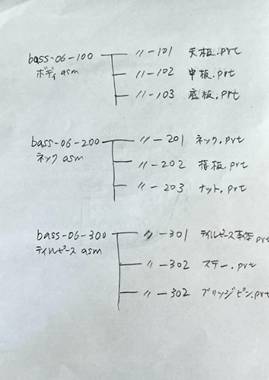 bass-06-100 〃-101 天板.prt
ボディ asm 〃-102 中板.prt
〃-103 底板.prt
bass-06-200 〃-201 ネック.prt
ネック asm 〃-202 指板.prt
〃-203 ナット.prt
bass-06-300 〃-301 テイルピース本体.prt
テイルピース asm 〃-302 ステー.prt
〃-302 ブリッジピン.prt